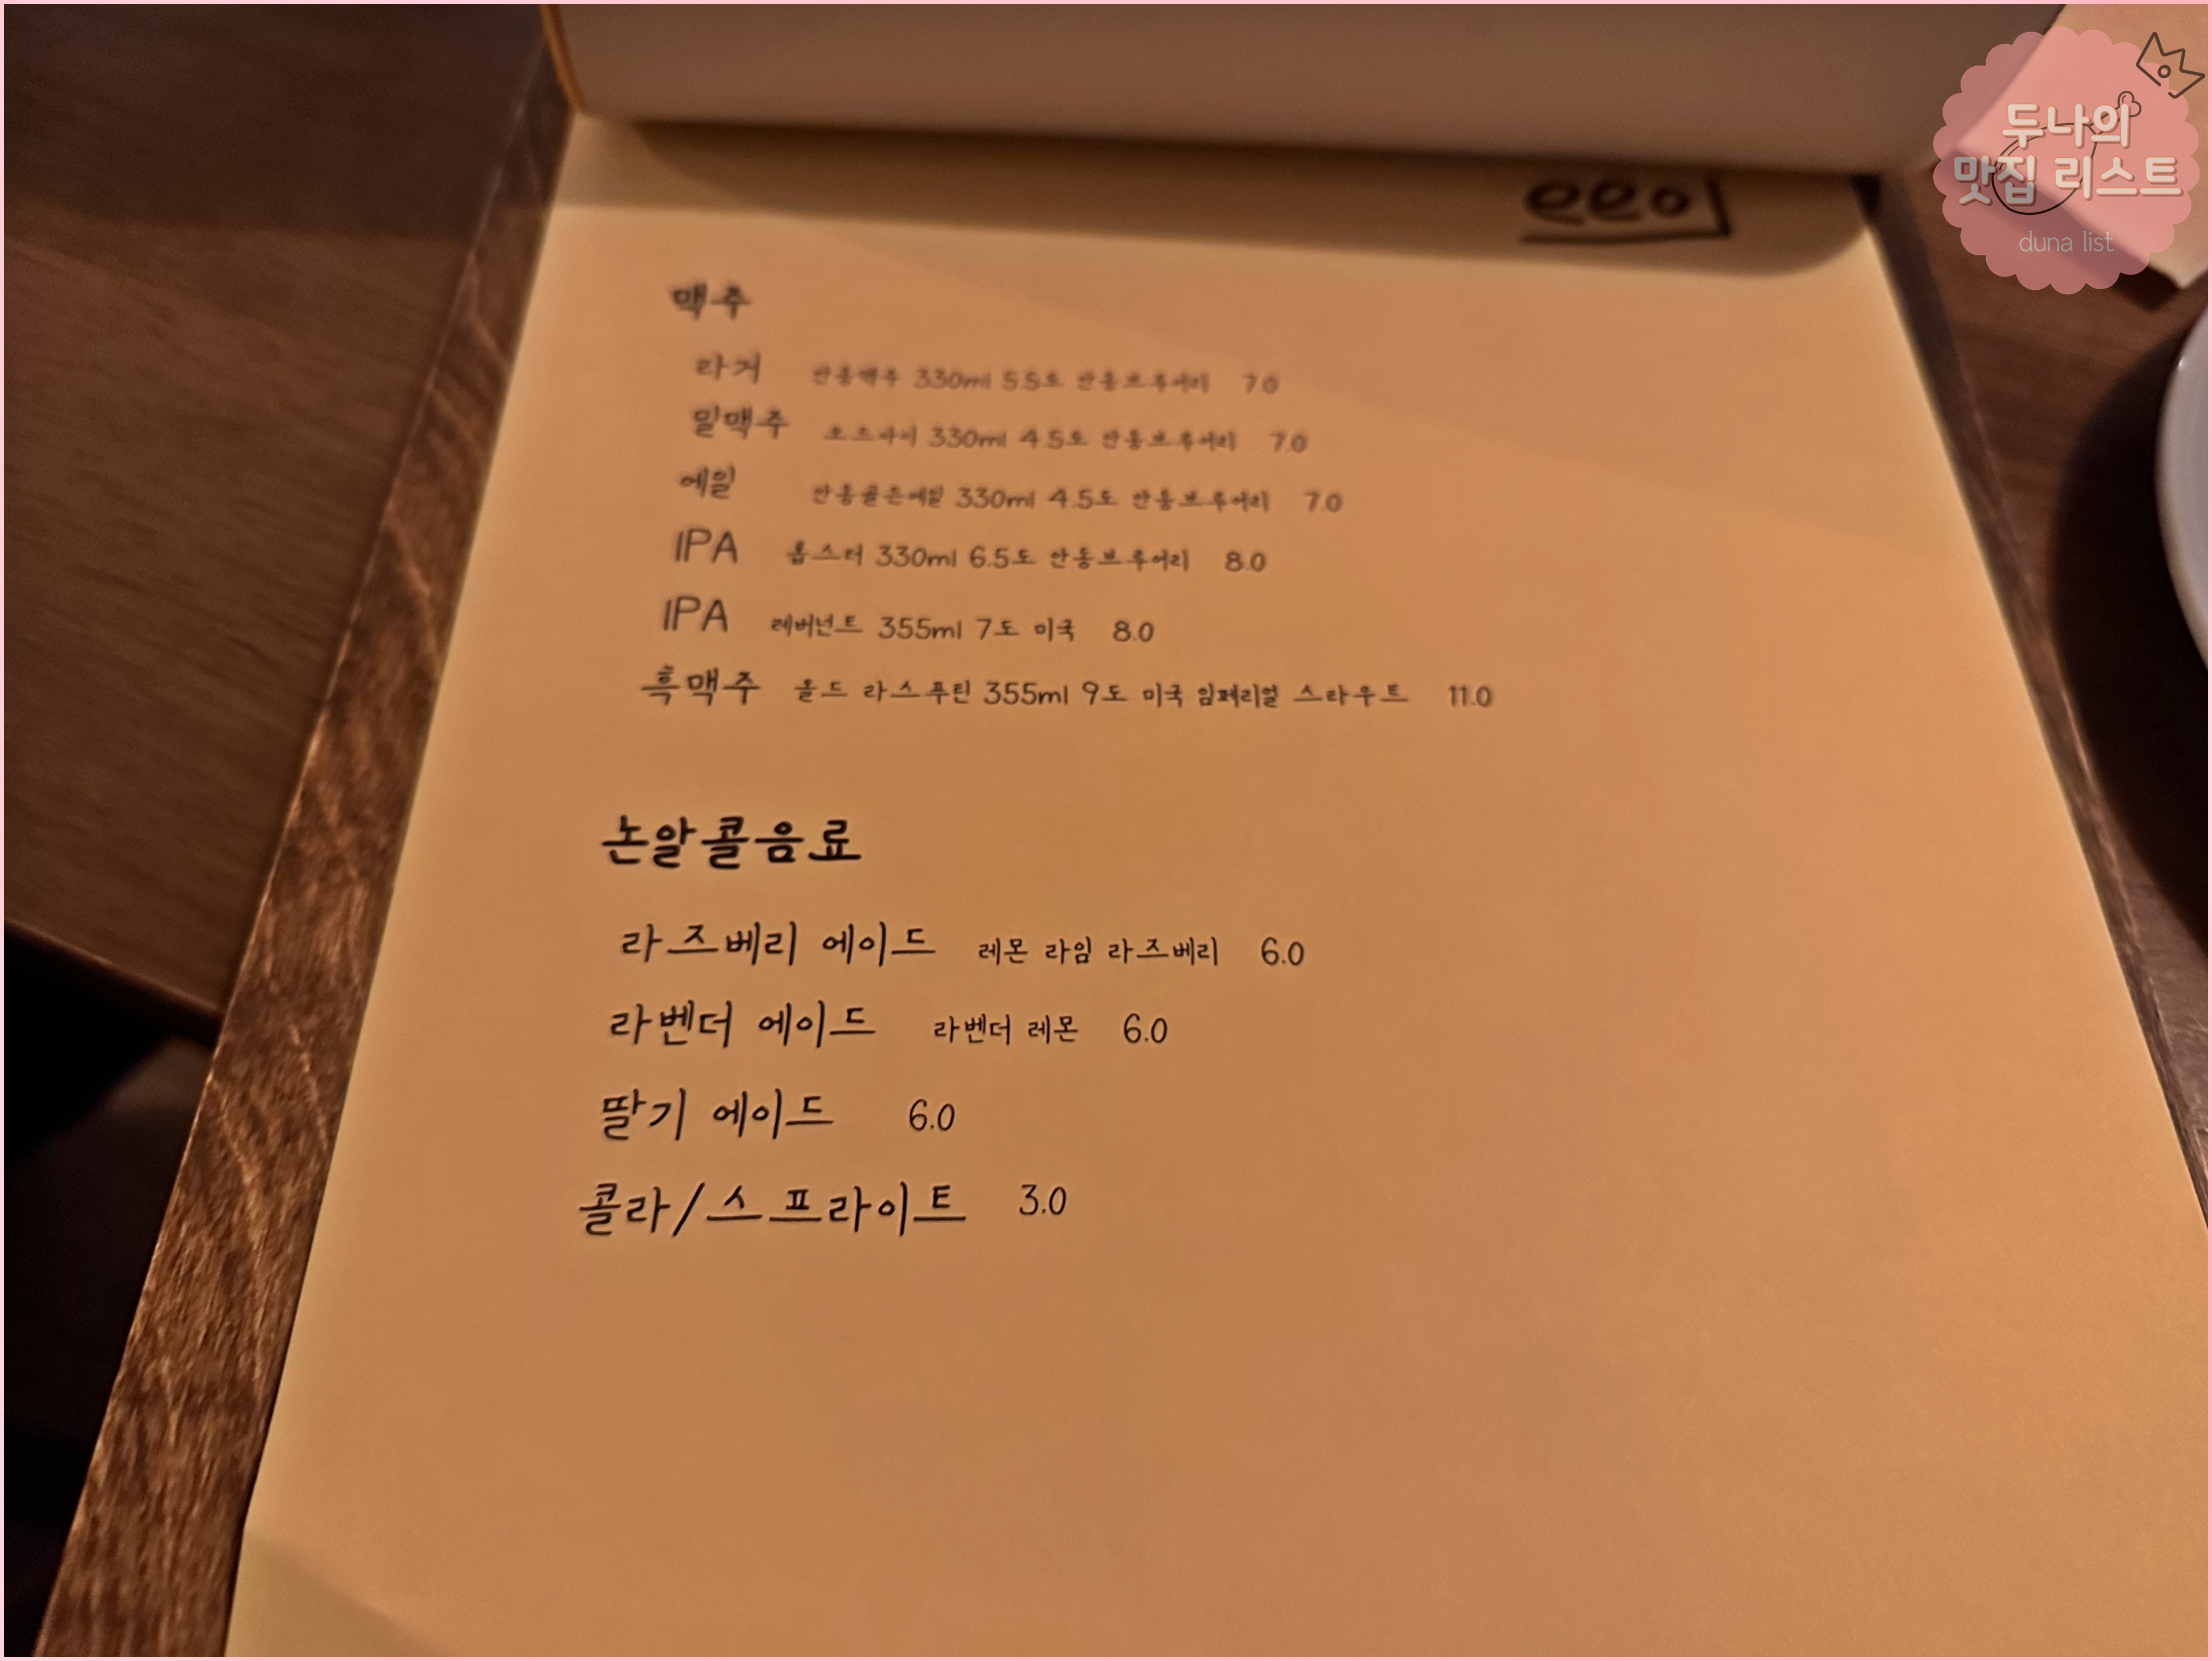 두나의
맛집 리스트
duna list
eeo
맥주
라거 안동맥주 330ml 5.5도 안동브루어리 7.0
밀맥주 330ml 4.5도 안동브루어리 7.0
에일 안동골든에일 330ml 4.5도 안동브루어리 7.0
IPA 홉스터 330ml 6.5도 안동브루어리 8.0
IPA 레버넌트 355ml 7도 미국 8.0
흑맥주 올드 라스푸틴 355ml 9도 미국 임페리얼 스타우트 11.0
논알콜음료
라즈베리 에이드 레몬 라임 라즈베리 6.0
라벤더 에이드 라벤더 레몬 6.0
딸기 에이드 6.0
콜라/스프라이트 3.0